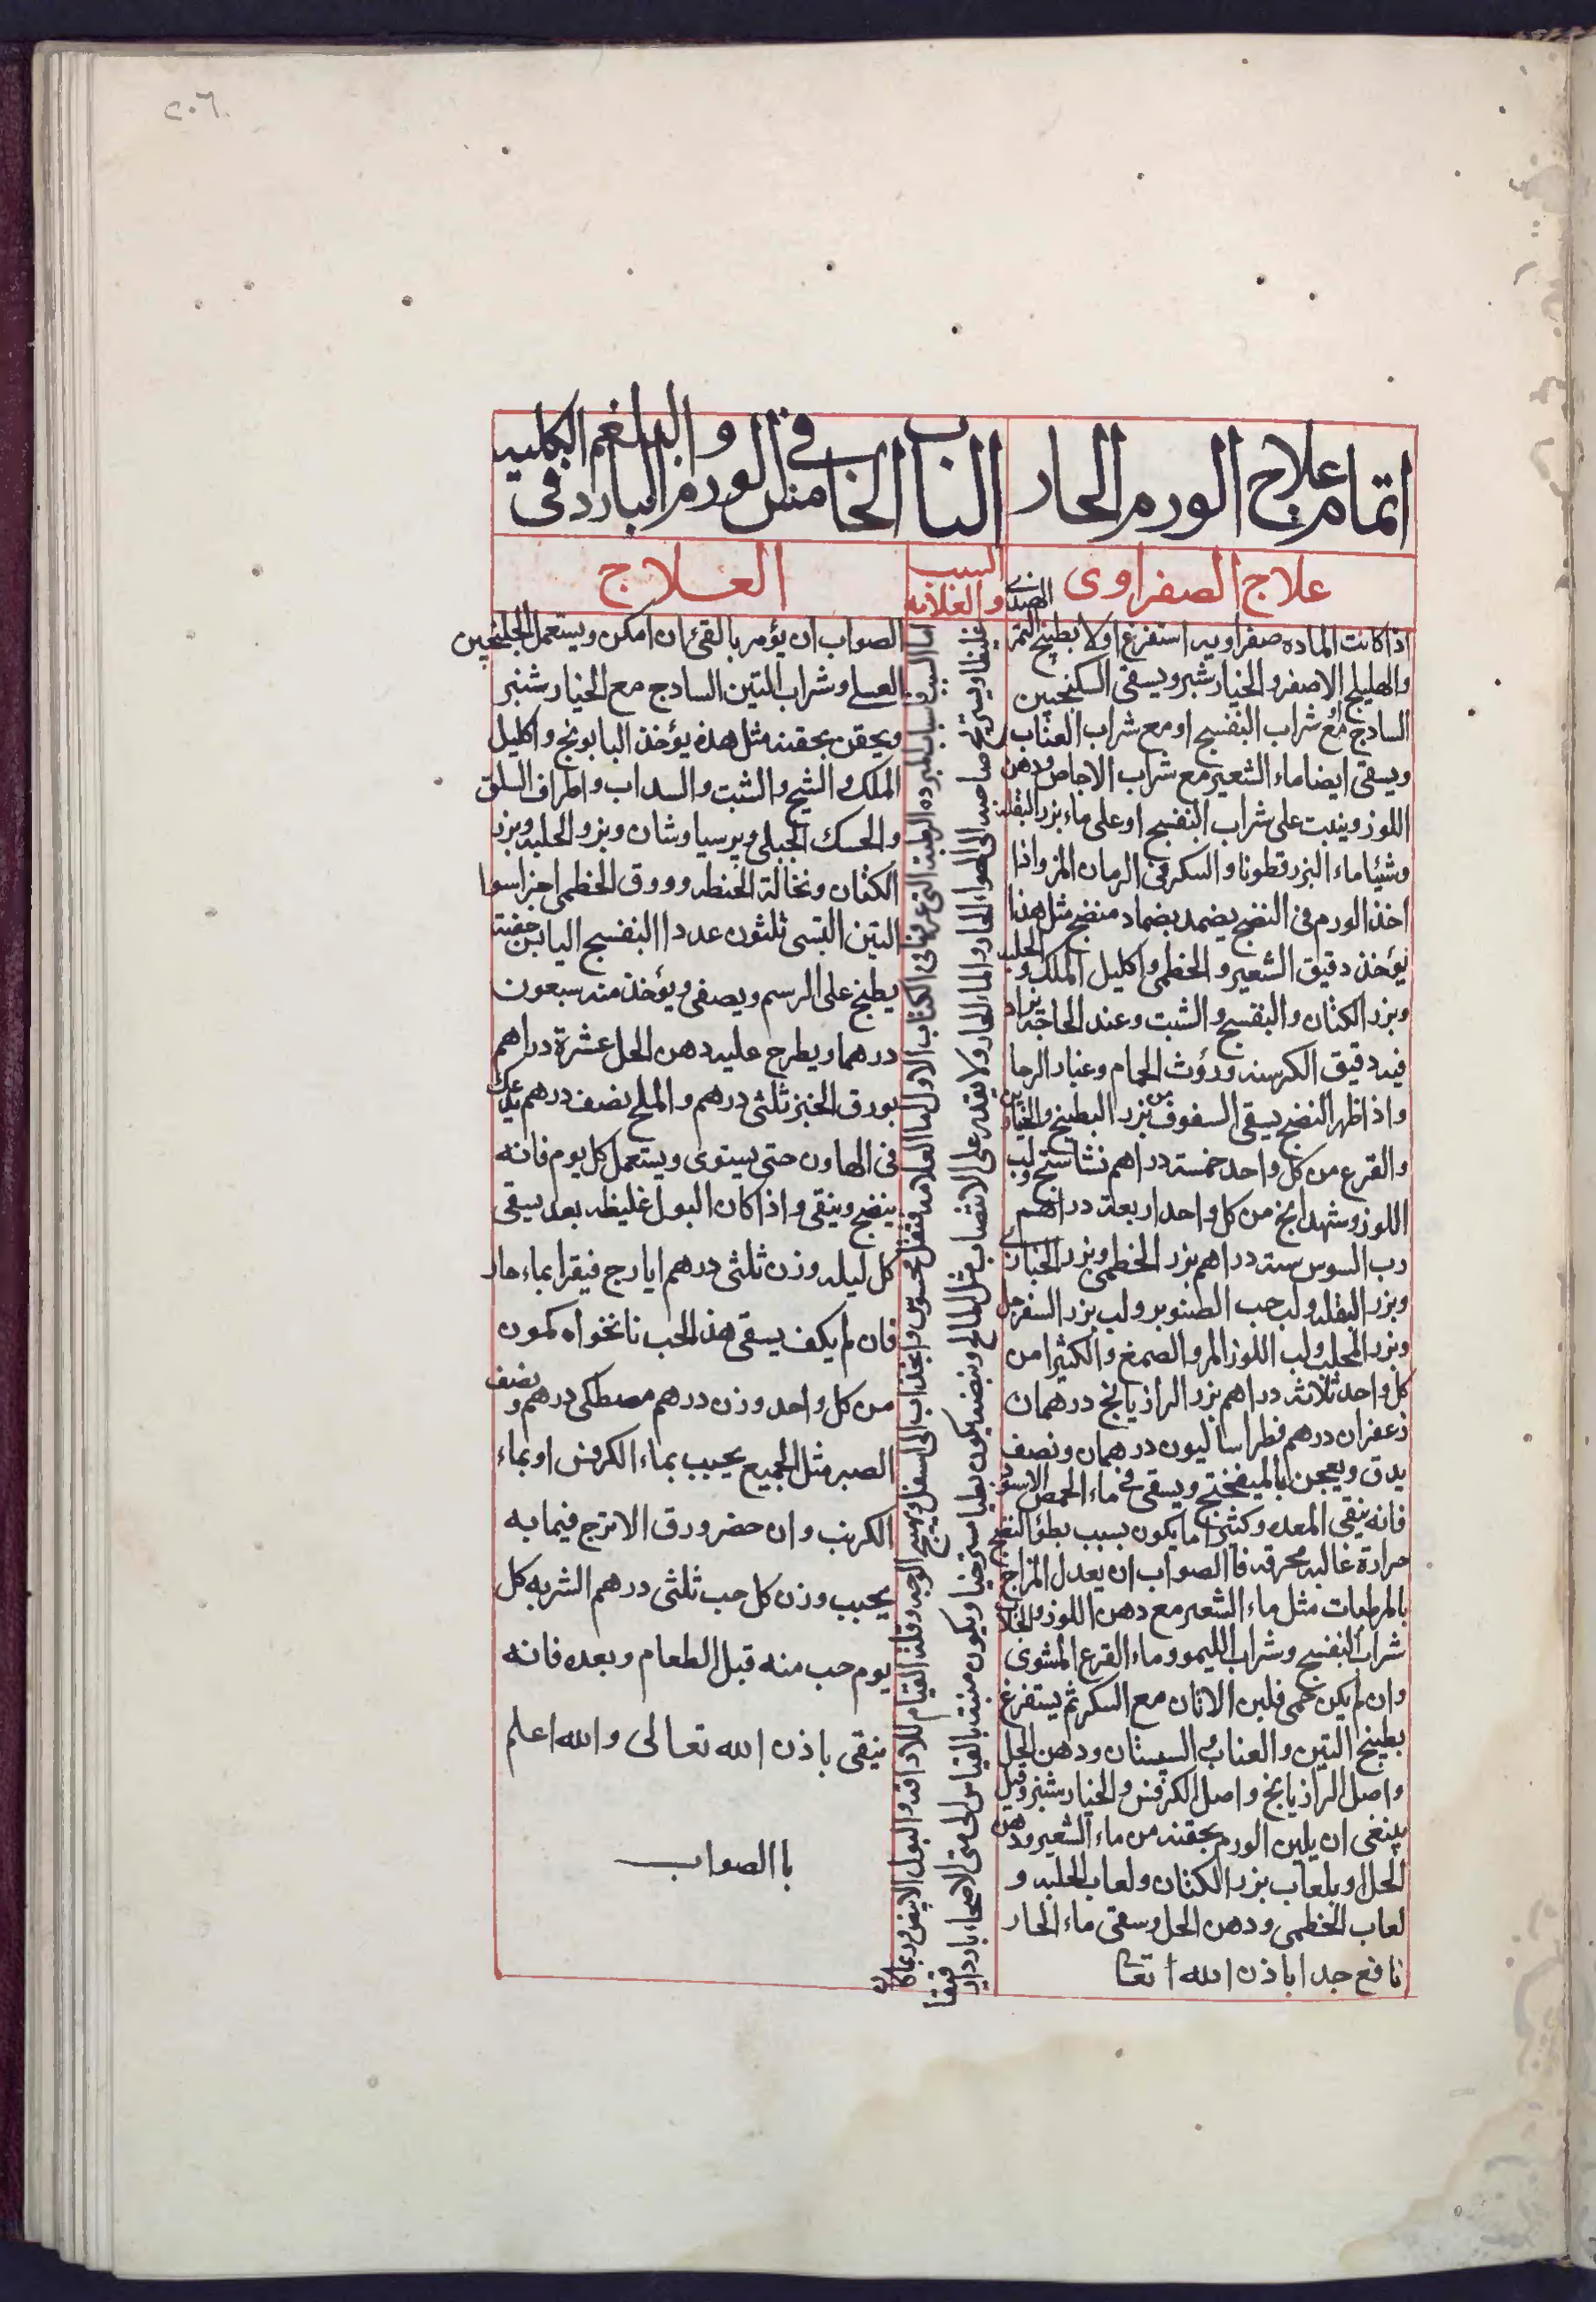 ٢٠٦
اتمام علاج الورم الحار
الباب الخامس في الورم البارد في
والبلغم الكلية
علاج الصفراوى
السبب
والعلامه
العلاج
اذا كانت الماده صفراويه استفرغ اولا بطبيخ التمر الهندى
والهليلج الاصفر والخيارشنبر ويسقى السكنجبين
الساذج مع شراب البنفسج او مع شراب العناب
ويسقى ايضا ماء الشعير مع شراب الاجاص ودهن
اللوز ويثبت على شراب البنفسج او على ماء بزر البقله
وشيئا ماء البزرقطونا والسكر فى الرمان المز واذا
اخذ الورم فى النضج يضمد بضماد منضج مثل هذا
يؤخذ دقيق الشعير والخطمى واكليل الملك والحلبه
وبزر الكتان والبنفسج والشبت وعند الحاجة يزاد
فيه دقيق الكرسنه وروث الحمام وغبار الرحا
واذا ظهر النضج يسقى السفوف من بزر البطيخ والخيارين
والقرع من كل واحد خمسة دراهم نشاستج ولب
اللوز وشهدانج من كل واحد اربعة دراهم
رب السوس ستة دراهم بزر الخطمى وبزر الخبازى
وبزر البقله ولب حب الصنوبر ولب بزر السفرجل
وبزر المحلب ولب اللوز المر والصمغ والكثيرا من
كل واحد ثلاثة دراهم بزر الرازيانج درهمان
زعفران درهم فطراساليون درهمان ونصف
يدق ويعجن بالميفختج ويسقى فى ماء الحمص الاسود
فانه ينقى المعده وكثيرا ما يكون بسبب بطؤ النضج
حرارة غالبه محرقه فاالصواب ان يعدل المزاج
بالمرطبات مثل ماء الشعير مع دهن اللوز والجلاب
شراب البنفسج وشراب الليمو وماء القرع المشوى
وان لم يكن حمى فلبن الاتان مع السكر ثم يستفرغ
بطبيخ التين والعناب والسبستان ودهن الحل
واصل الرازيانج واصل الكرفس والخيارشنبر وقيل
ينبغى ان يلين الورم بحقنه من ماء الشعير ودهن
الحل او بلعاب بزر الكتان ولعاب الحلبه و
لعاب الخطمى ودهن الحل وسقى ماء الحار
نافع جدا باذن الله تعا
اما السبب فاسباب المبرده الرطبة التى عرفتها فى الكتاب الاول اما العلامه فثقل محسوس وانجذاب الى اسفل وتهيج الوجه وقلة القيام للاراقه والبول الابيض وربما كان
غليظا ويستريح صاحبه الى الهواء الحار والماء الحار ولا يقدر على الانتصاب مثل الصالح ونبضه يكون بطيا مسترخيا ويكون منيه بالقياس الى متى الاصحاء باردا رقيقا
الصواب ان يؤمر بالقئ ان امكن ويستعمل الجلنجبين
العسلى وشراب التين الساذج مع الخيارشنبر
ويحقن بحقنه مثل هذه يؤخذ البابونج واكليل
الملك والشيح والشبت والسداب واطراف السلق
والحسك الجبلى وپرسياوشان وبزر الحلبه وبزر
الكتان ونخالة الحنطه وورق الخطمى اجزا سوا
التين التبسى ثلثون عددا البنفسج اليابس حفنة
يطبخ على الرسم ويصفى ويؤخذ منه سبعون
درهما ويطرح عليه دهن الحل عشرة دراهم
بورق الخبز ثلثى درهم والملح نصف درهم يدعك
فى الهاون حتى يستوى ويستعمل كل يوم فانه
ينضج وينقى واذا كان البول غليظه بعد يسقى
كل ليله وزن ثلثى درهم ايارج فيقرا بماء حار
فان لم يكف يسقى هذا الحب نانخواه كمون
من كل واحد وزن درهم مصطكى درهم ونصف
الصبر مثل الجميع يحبب بماء الكرفس او بماء
الكرنب وان حضر ورق الاترج فيما به
يحبب وزن كل حب ثلثى درهم الشربه كل
يوم حب منه قبل الطعام وبعده فانه
ينقى باذن الله تعالى والله اعلم
باالصواب